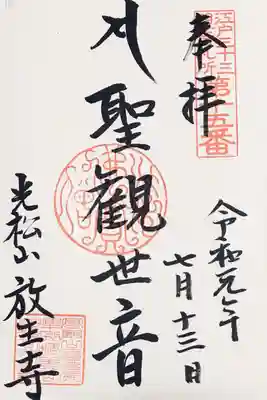 江戸三十三
札所
第十五番
奉拝
聖観世音
令和元年
七月十三日
光松山 放生寺